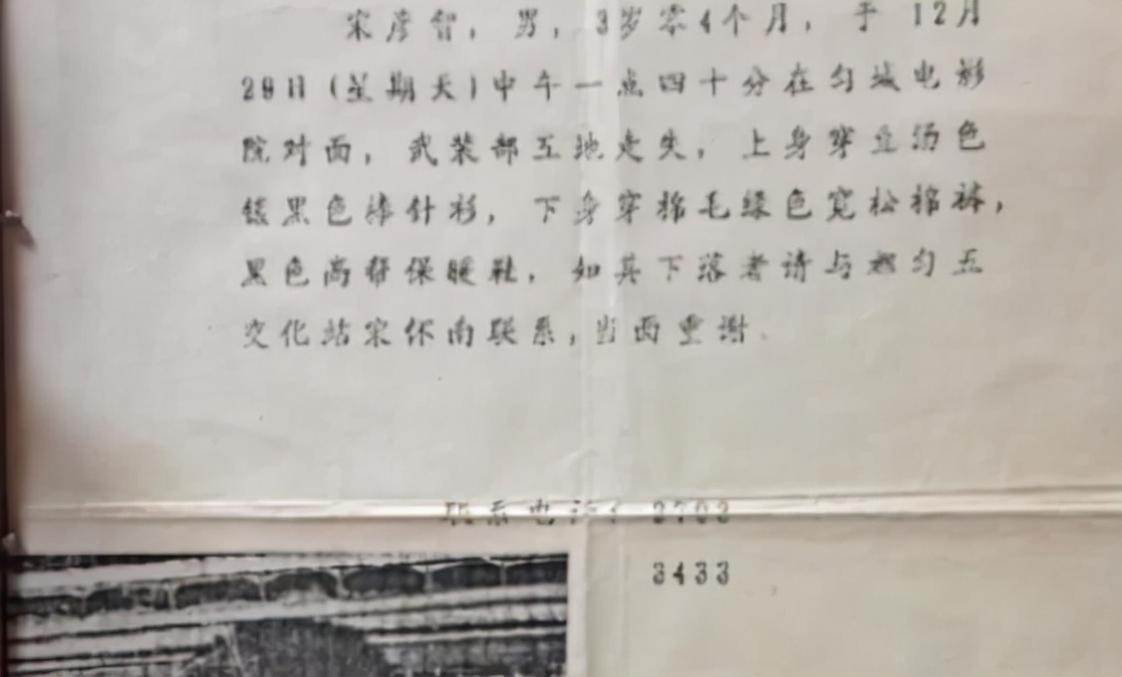 宋彦智，男，3岁零4个月，于12月
29日(星期天)中午一点四十分在匀城电影
院对面，武装部工地走失，上身穿 汤色
镶黑色棒针衫，下身穿棉毛绿色宽松棉裤，
黑色高帮保暖鞋，如其下落者请与都匀五
交化站宋怀南联系，当面重谢.
联系电话: 3703
3433